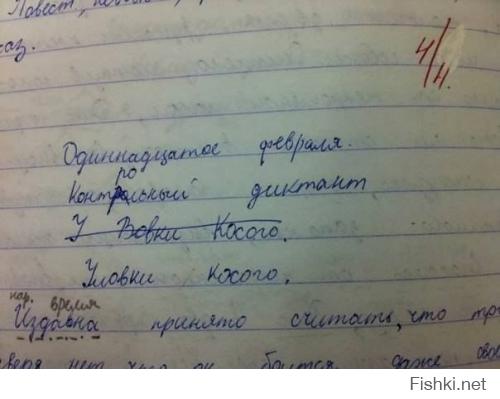 Повест,
каз.
4/4.
Одиннадцатое февраля.
ро
Контрольный диктант
У Вовки Косого.
Уловки Косого.
нар. время
Издавна принято считать, что
нет боится даже
Fishki.net